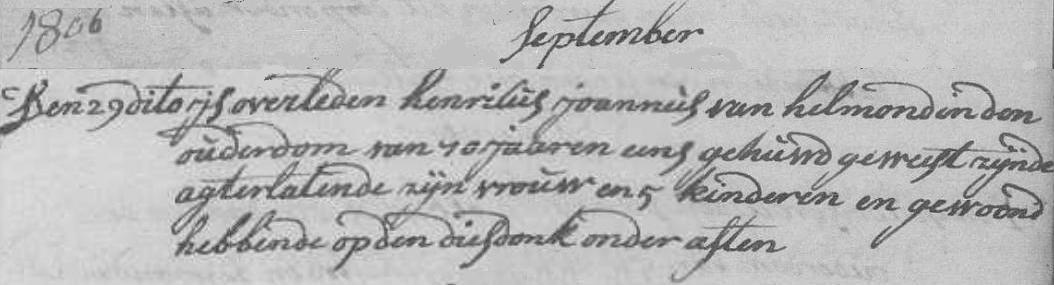 1806
September
Den 29 dito ijs overleden henricus joannnus van helmond in den
ouderdom van 70 jaaren eens gehuwd geweest zijnde
agterlatende zijn vrouw en 5 kinderen en gewoond
hebbende op den diesdonk onder asten